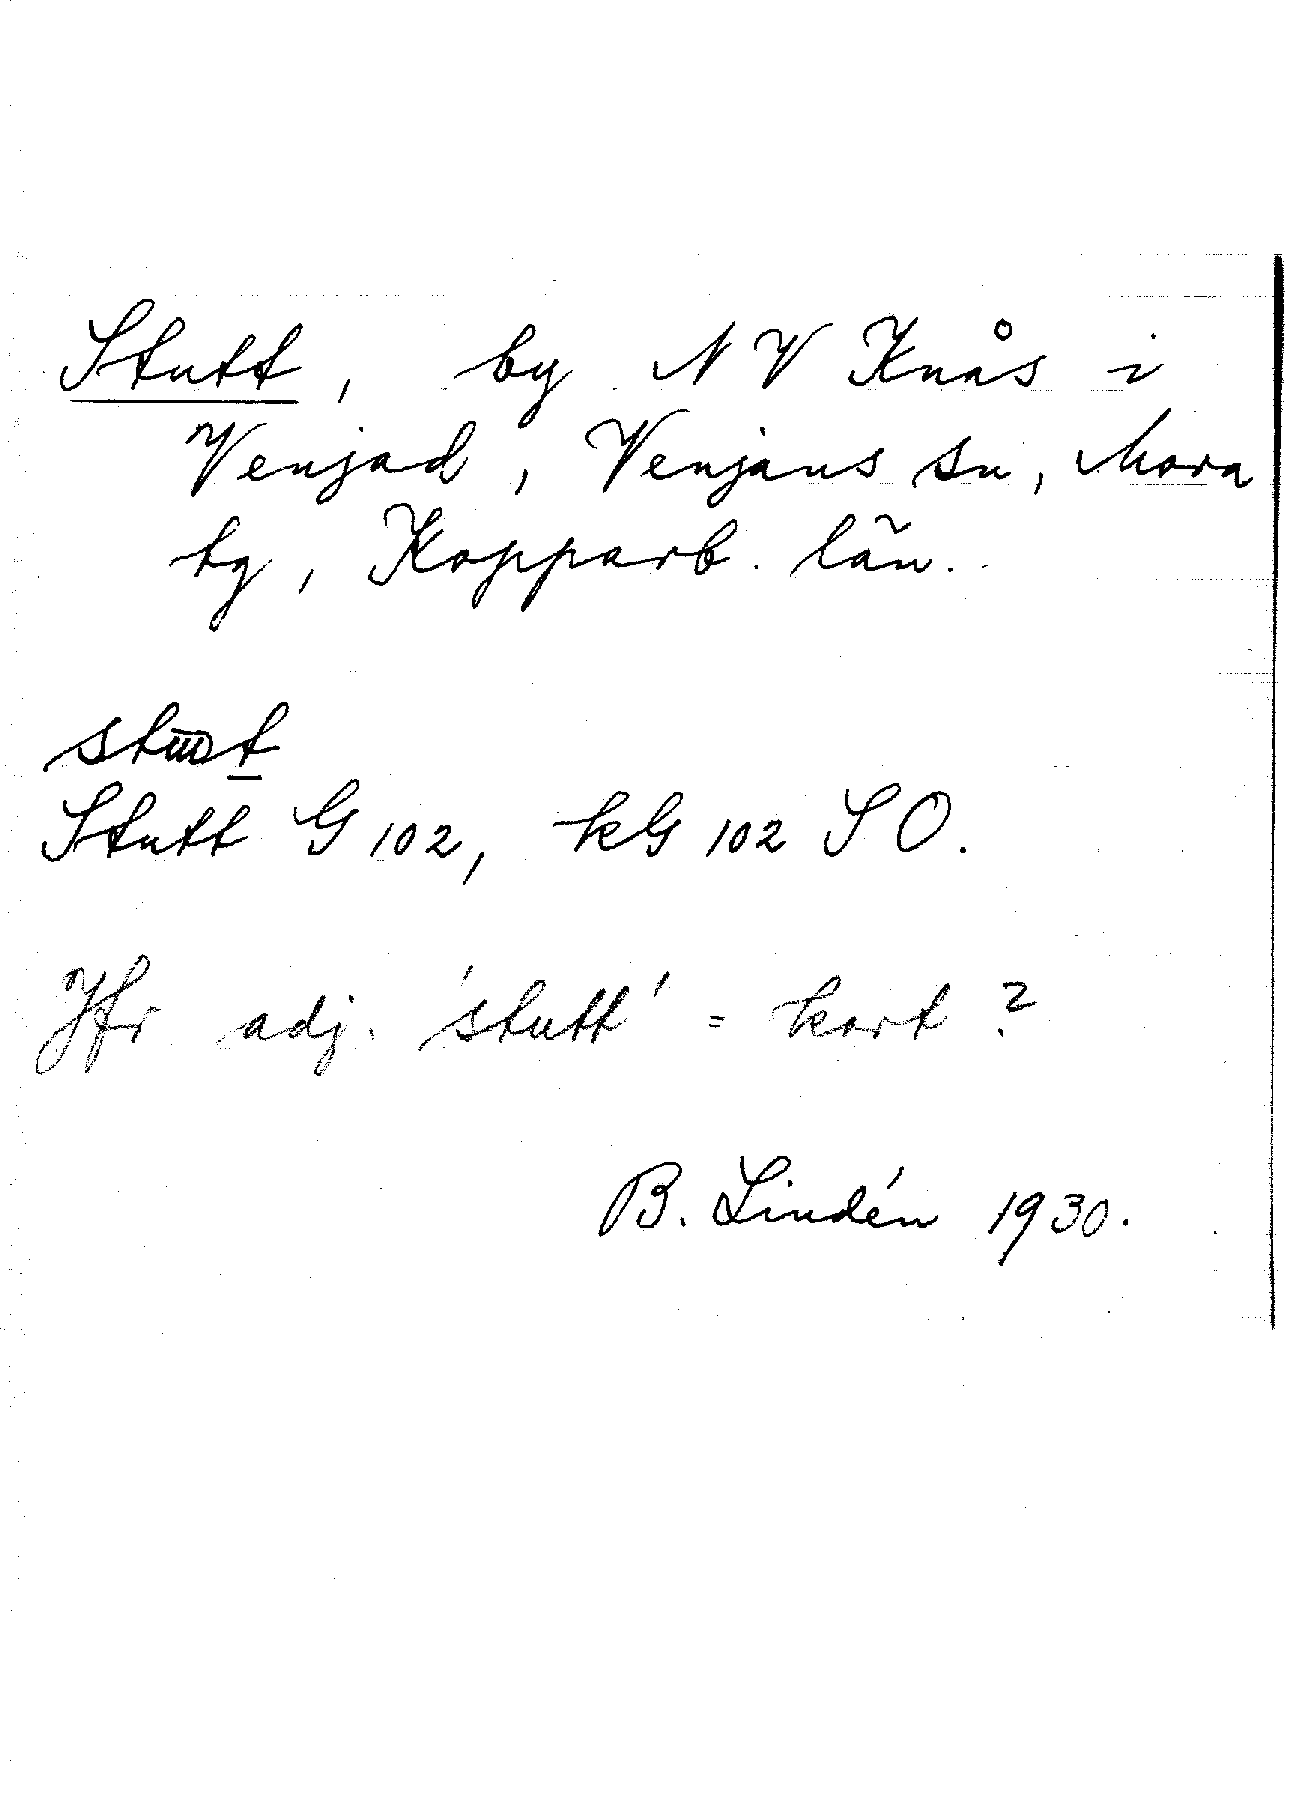 Stutt, by NV Knås i
Venjad, Venjans sn, Mora
tg, Kopparb. län.
Stutt G 102, kG 102 SO.
Jfr adj. 'stutt' = kort?
B. Lindén 1930.